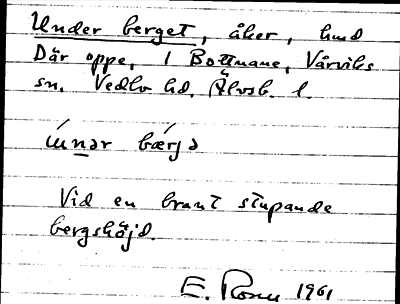 Under berget, åker, hmd
Där oppe, 1 Bottnane, Vårviks
sn. Vedbo hd. Älvsb. l.
ínnər bǽrjə
Vid en brant stupande
bergshöjd.
E. 1961